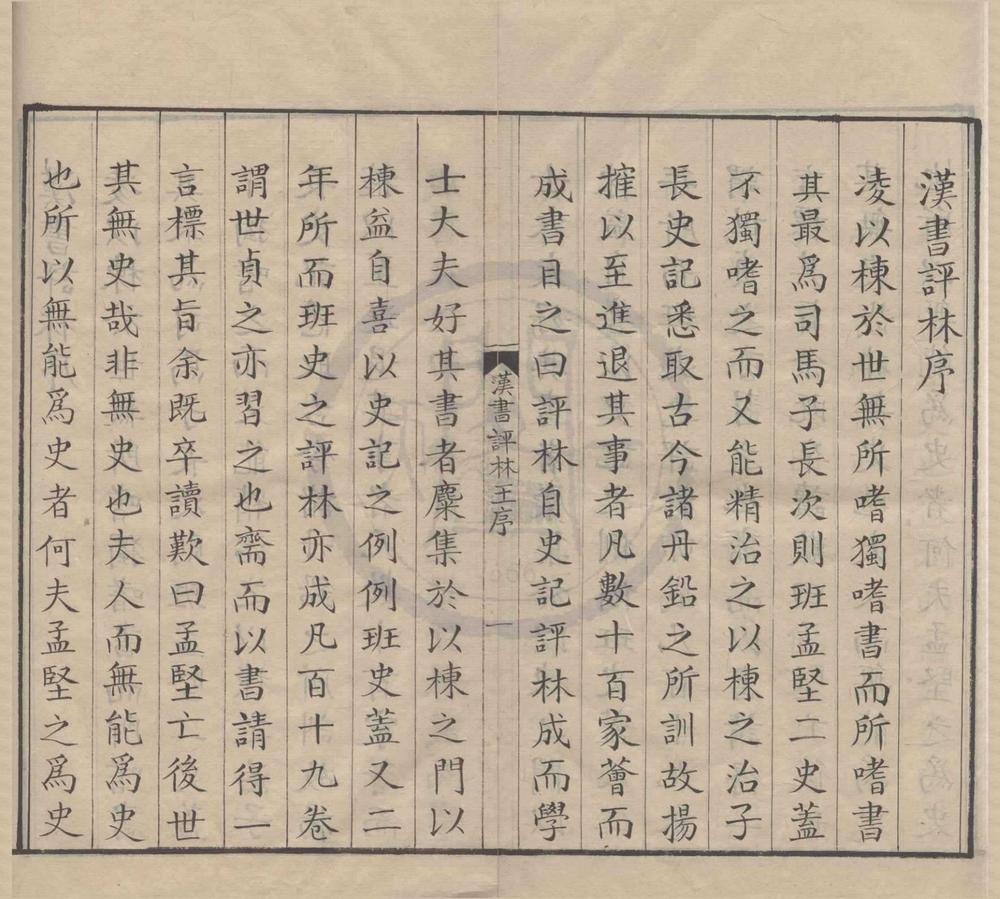 漢書評林序
凌以棟於世無所嗜獨嗜書而所嗜書
其最爲司馬子長次則班孟堅二史蓋
不獨嗜之而又能精治之以棟之治子
長史記悉取古今諸丹鉛之所訓故揚
搉以至進退其事者凡數十百家薈而
成書目之曰評林自史記評林成而學
漢書評林王序
一
士大夫好其書者麇集於以棟之門以
棟益自喜以史記之例例班史蓋又二
年所而班史之評林亦成凡百十九卷
謂世貞之亦習之也齋而以書請得一
言標其旨余既卒讀歎曰孟堅亡後世
其無史哉非無史也夫人而無能爲史
也所以無能爲史者何夫孟堅之爲史